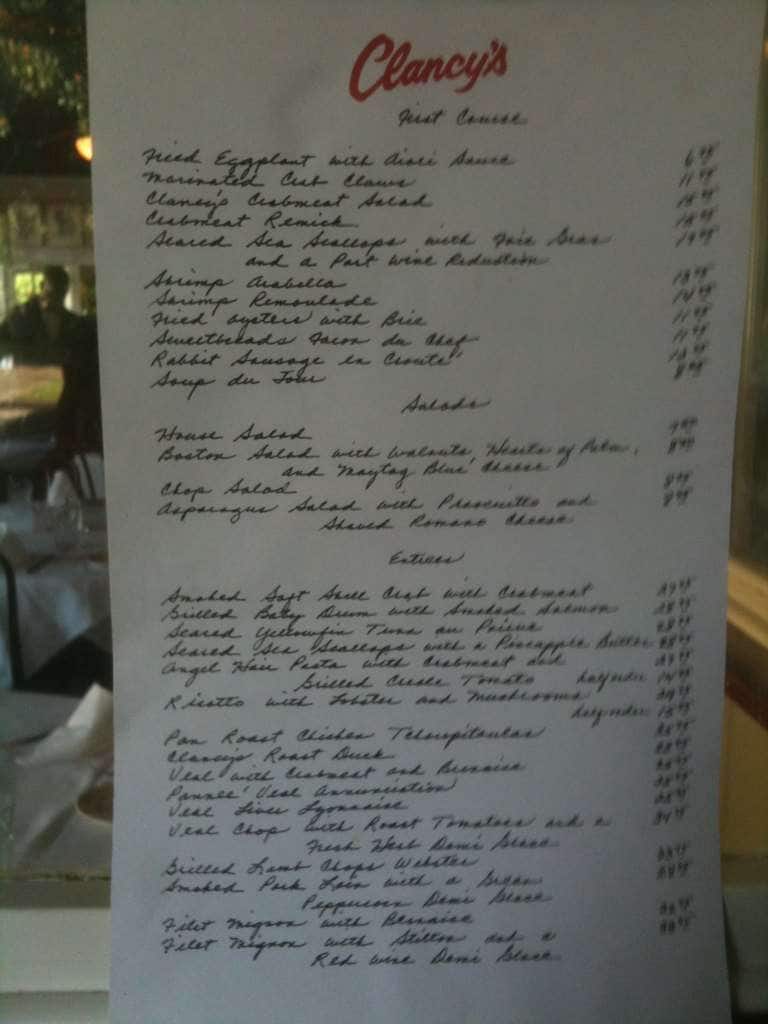 Clancy's
First Course
Fried Eggplant with Aioli Sauce 6
Marinated Crab Claws 11
Clancy's Crabmeat Salad
Crabmeat Remick
Seared Sea Scallops with Foie Gras
and a Port Wine Reduction
Shrimp Arabella
Shrimp Remoulade
Fried Oysters with Brie
Sweetbreads Facon du Chef
Rabbit Sausage en Croute'
Soup du Jour
Salads
House Salad
Boston Salad with Walnuts, Hearts of Palm,
and Maytag Blue Cheese
Chop Salad
Asparagus Salad with Proscuitto and
Shaved Romano Cheese
Entrees
Smoked Soft Shell Crab with Crabmeat
Grilled Baby Drum with Smoked Salmon
Seared Yellowfin Tuna au Poivre
Seared Sea Scallops with a Pineapple Butter
Angel Hair Pasta with Crabmeat and
Grilled Creole Tomato half order
Risotto with Lobster and Mushrooms
half order
Pan Roast Chicken Tchoupitoulas
Clancy's Roast Duck
Veal with Crabmeat and Bernaise
Pannee' Veal Annunciation
Veal Liver Lyonnaise
Veal Chop with Roast Tomatoes and a
Fresh Herb Demi Glace
Grilled Lamb Chops Webster
Smoked Pork Loin with a Green
Peppercorn Demi Glace
Filet Mignon with Bernaise
Filet Mignon with Stilton and a
Red Wine Demi Glace